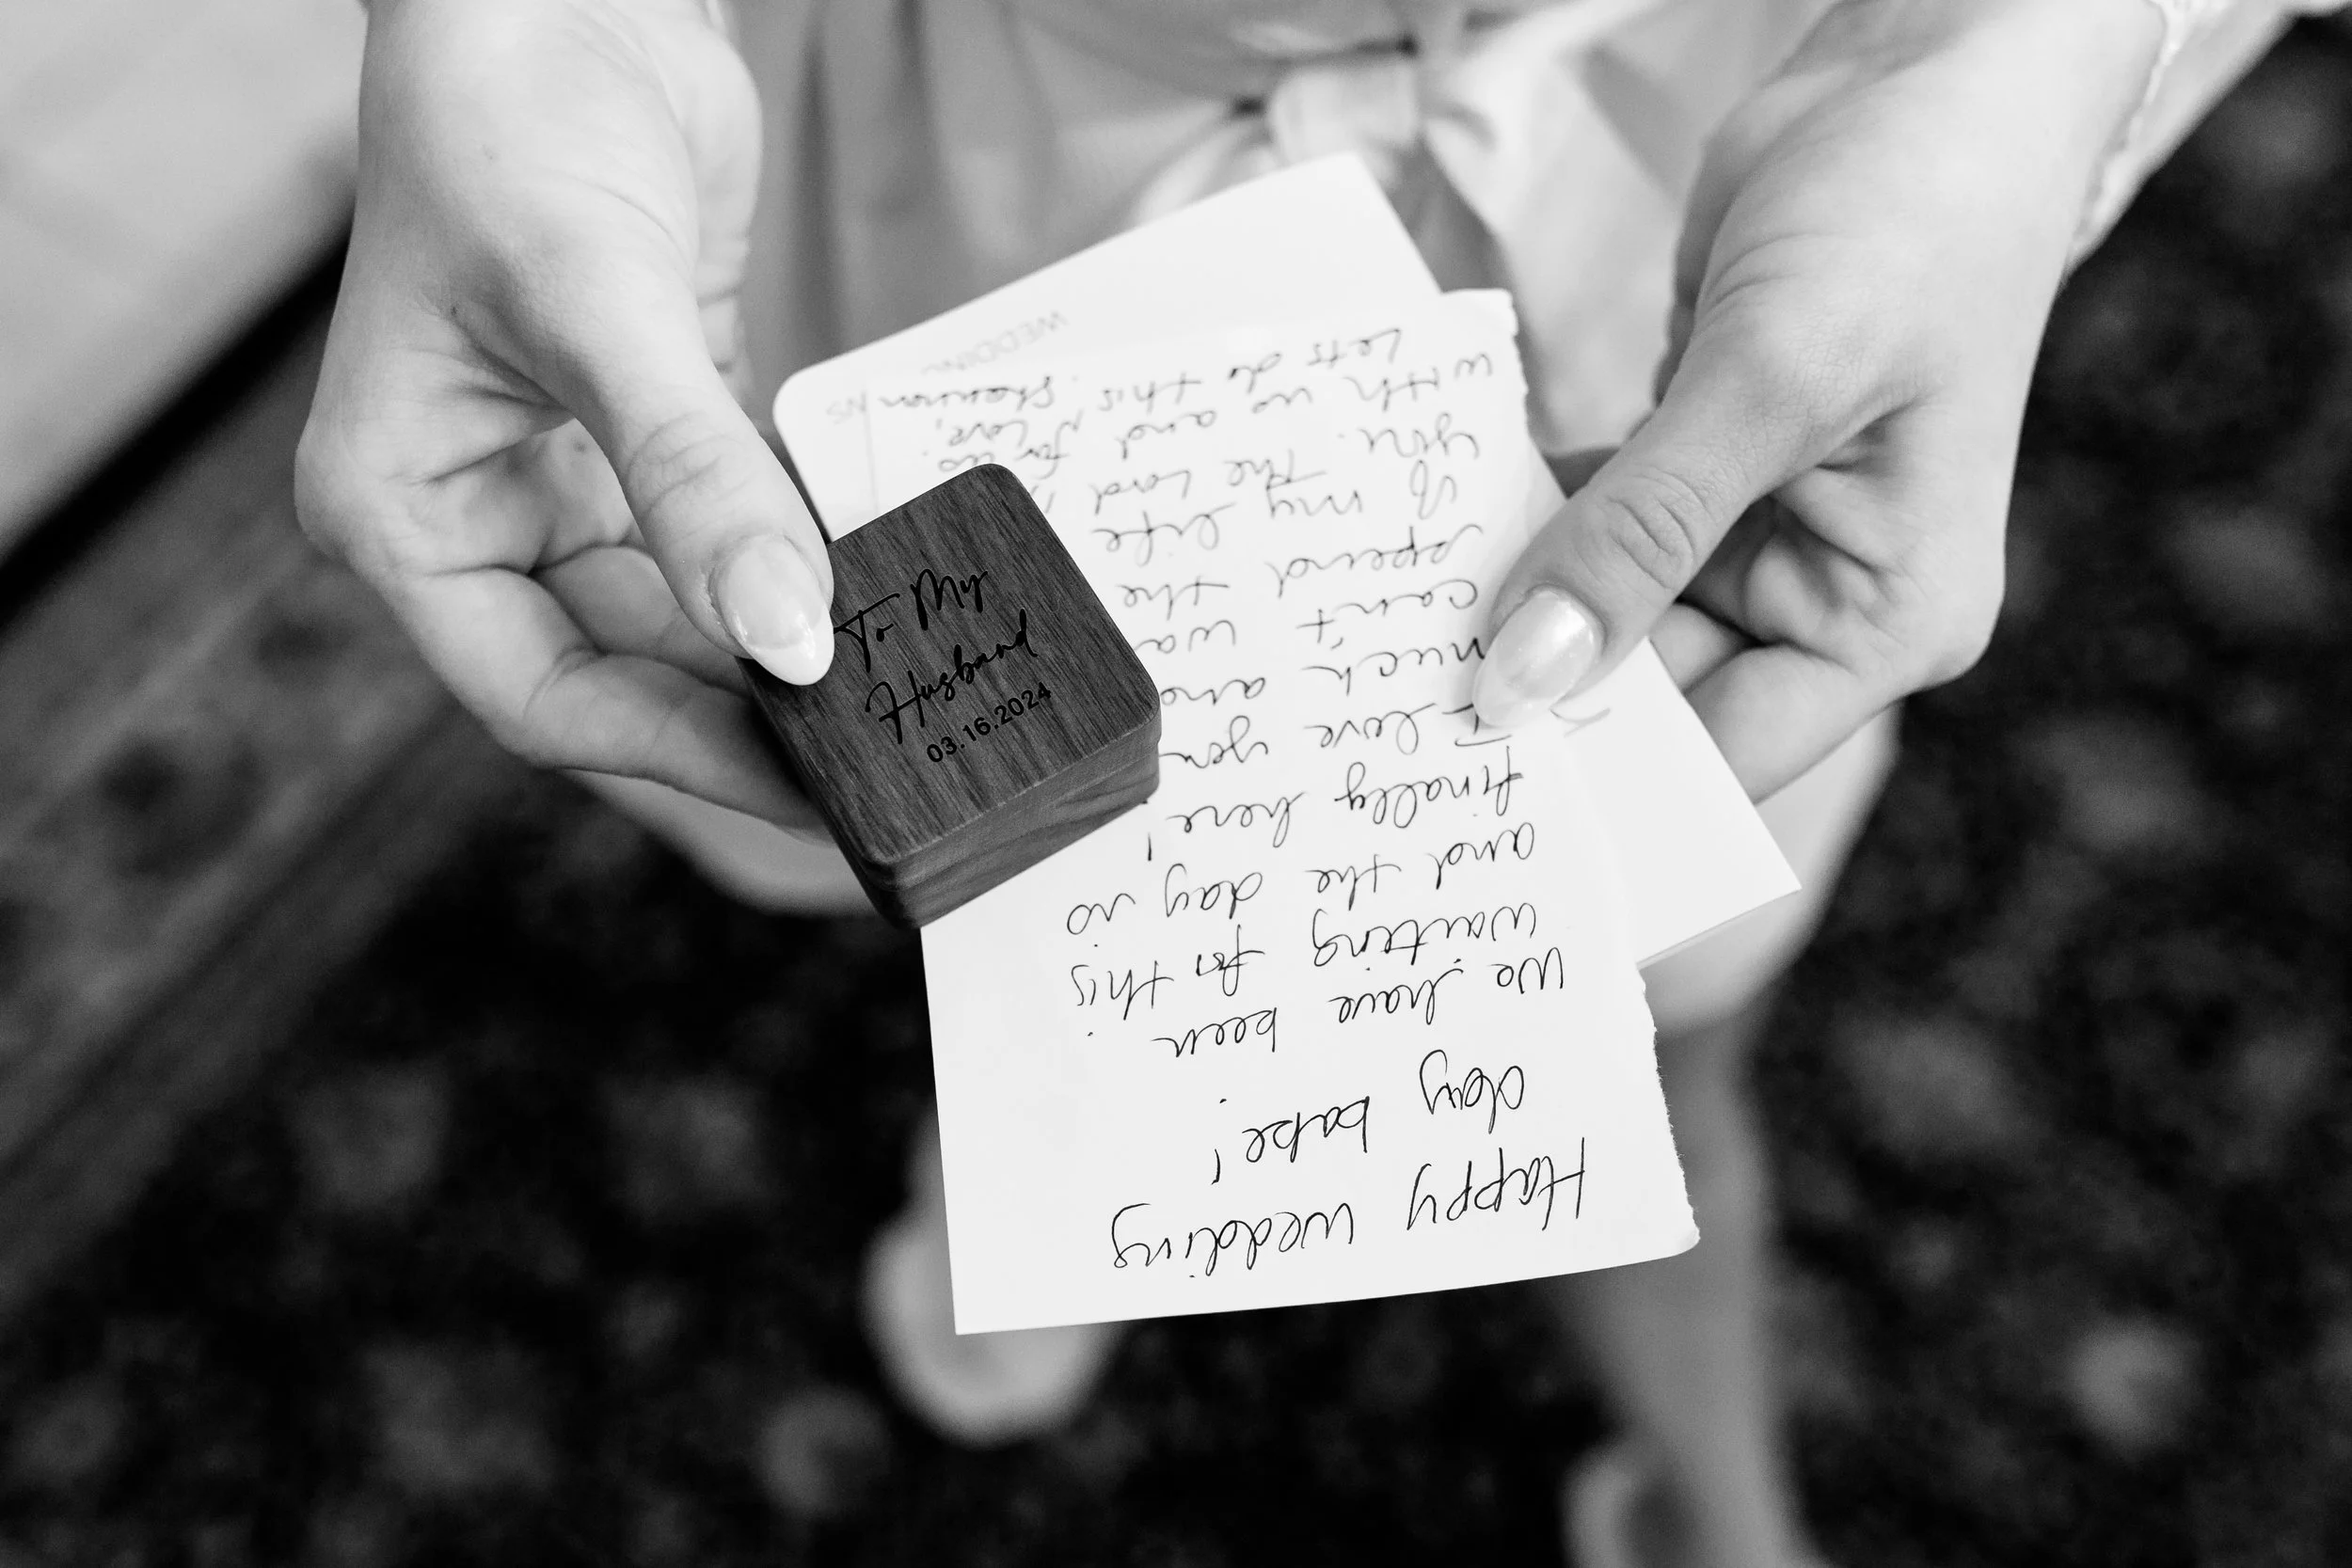 To My
Husband
03.16.2024
Happy wedding
day babe!
We have been
waiting for this
and the day is
finally here!
I love you
much and
can't wa
spend the
of my life
you. The Lord is
with us and for us.
Lets do this! Love,
Shannon
WEDDING